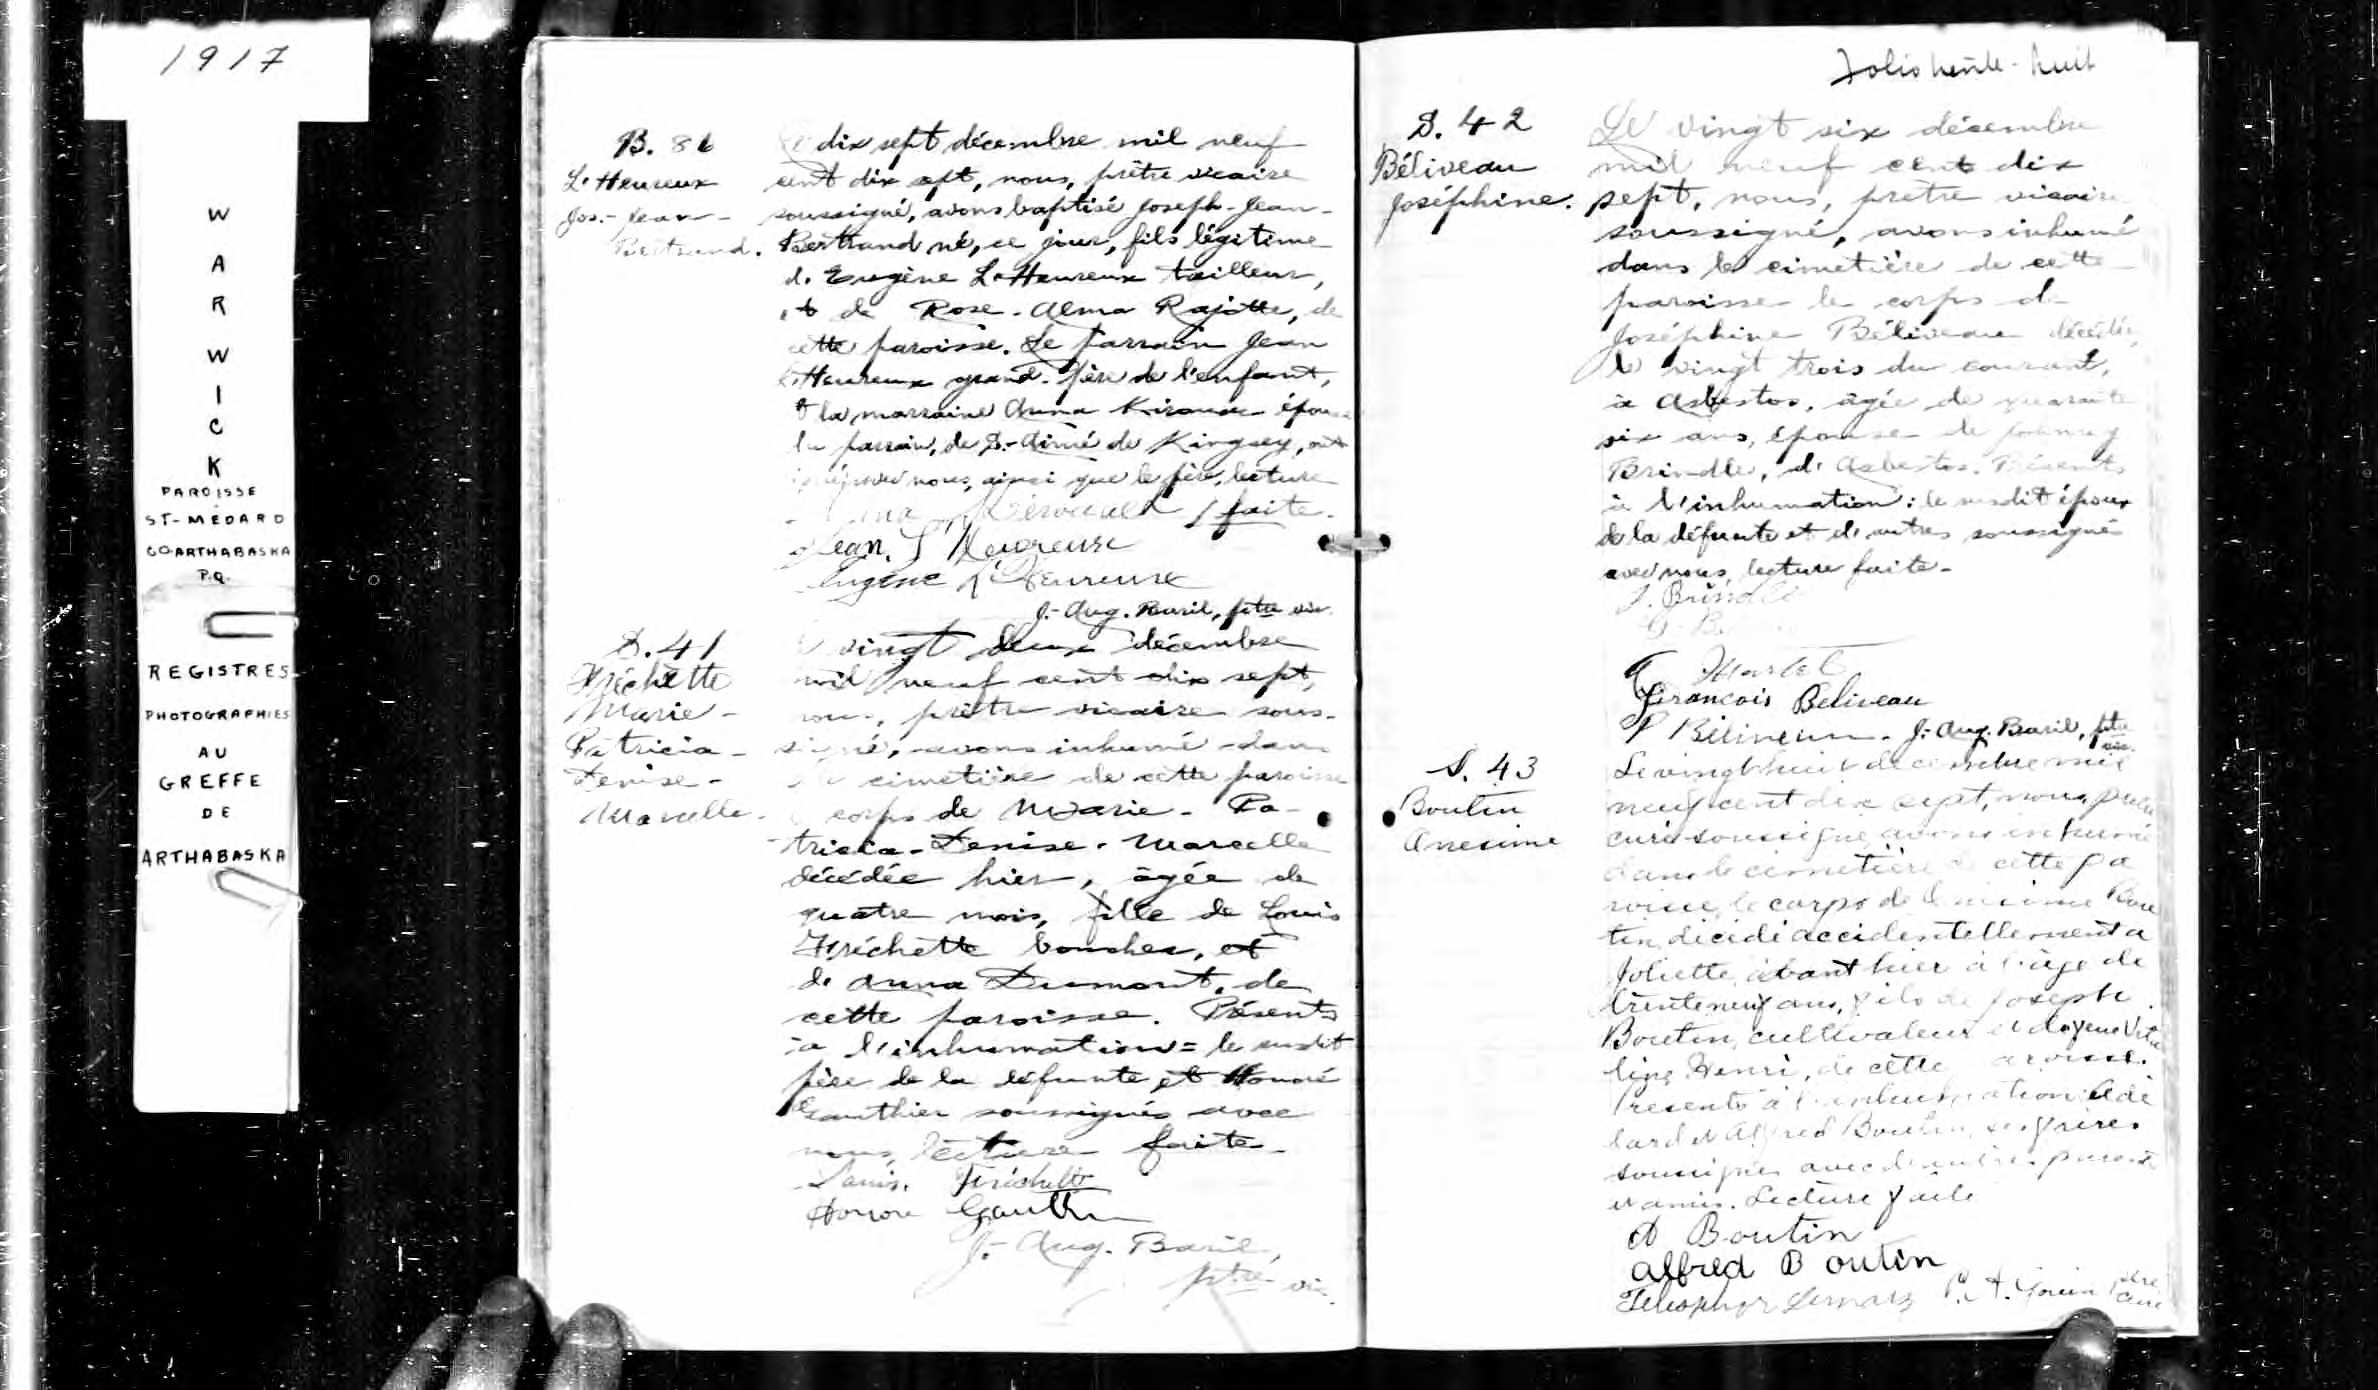 1917
WARWICK
PAROISSE
ST-MÉDARD
CO ARTHABASKA
P.Q.
REGISTRES
PHOTOGRAPHIES
AU
GREFFE
DE
ARTHABASKA
B. 86
L'Heureux
Jos.-Jean-
Bertrand.
dix sept décembre mil neuf
cent dix sept, nous, prêtre vicaire
soussigné, avons baptisé Joseph-Jean-
Bertrand né, ce jour, fils légitime
de Eugène L'Heureux tailleur,
et de Rose-Alma Rajotte, de
cette paroisse. Le parrain Jean
L'Heureux grand-père de l'enfant,
et la marraine Anna Kirouac épouse
du parrain, de St-Aimé de Kingsey, ont
signé avec nous, ainsi que le père, lecture
faite.
Jean L'Heureux
Eugène L'Heureux
J.-Aug. Baril, ptre vic.
S. 41
Fréchette
Marie-
Patricia-
Denise-
Marcelle.
vingt deux décembre
mil neuf cent dix sept,
nous, prêtre vicaire sous-
signé, avons inhumé dans
le cimetière de cette paroisse
le corps de Marie-Pa-
tricia-Denise-Marcelle
décédée hier, âgée de
quatre mois, fille de Louis
Fréchette boucher, et
de Anna Dumont, de
cette paroisse. Présents
à l'inhumation: le susdit
père de la défunte et Honoré
Gauthier soussignés avec
nous, lecture faite.
Louis Fréchette
Honoré Gauthier
J.-Aug. Baril,
ptre vic.
Folio trente-huit
S. 42
Béliveau
Joséphine.
Le vingt six décembre
mil neuf cent dix
sept, nous, prêtre vicaire
soussigné, avons inhumé
dans le cimetière de cette
paroisse le corps de
Joséphine Béliveau décédée,
le vingt trois du courant,
à Asbestos, âgée de quarante
six ans, épouse de Johnny
Brindle, de Asbestos. Présents
à l'inhumation: le susdit époux
de la défunte et de autres soussignés
avec nous, lecture faite.
J. Brindle
Martel
François Beliveau
P Béliveau. J.-Aug. Baril, ptre
vic.
S. 43
Boutin
Onesime
Le vingt huit décembre mil
neuf cent dix sept, nous, prêtre
curé soussigné, avons inhumé
dans le cimetière de cette pa
roisse, le corps de Onesime Bou
tin, décédé accidentellement a
Joliette, avant hier à l'âge de
trente neuf ans, fils de Joseph
Boutin, cultivateur et de feue Vita
line Henri, de cette paroisse.
Présents à l'inhumation: Adé
lard et Alfred Boutin, ses frères
soussignés avec d'autres parents
et amis. Lecture faite
A Boutin
Alfred Boutin